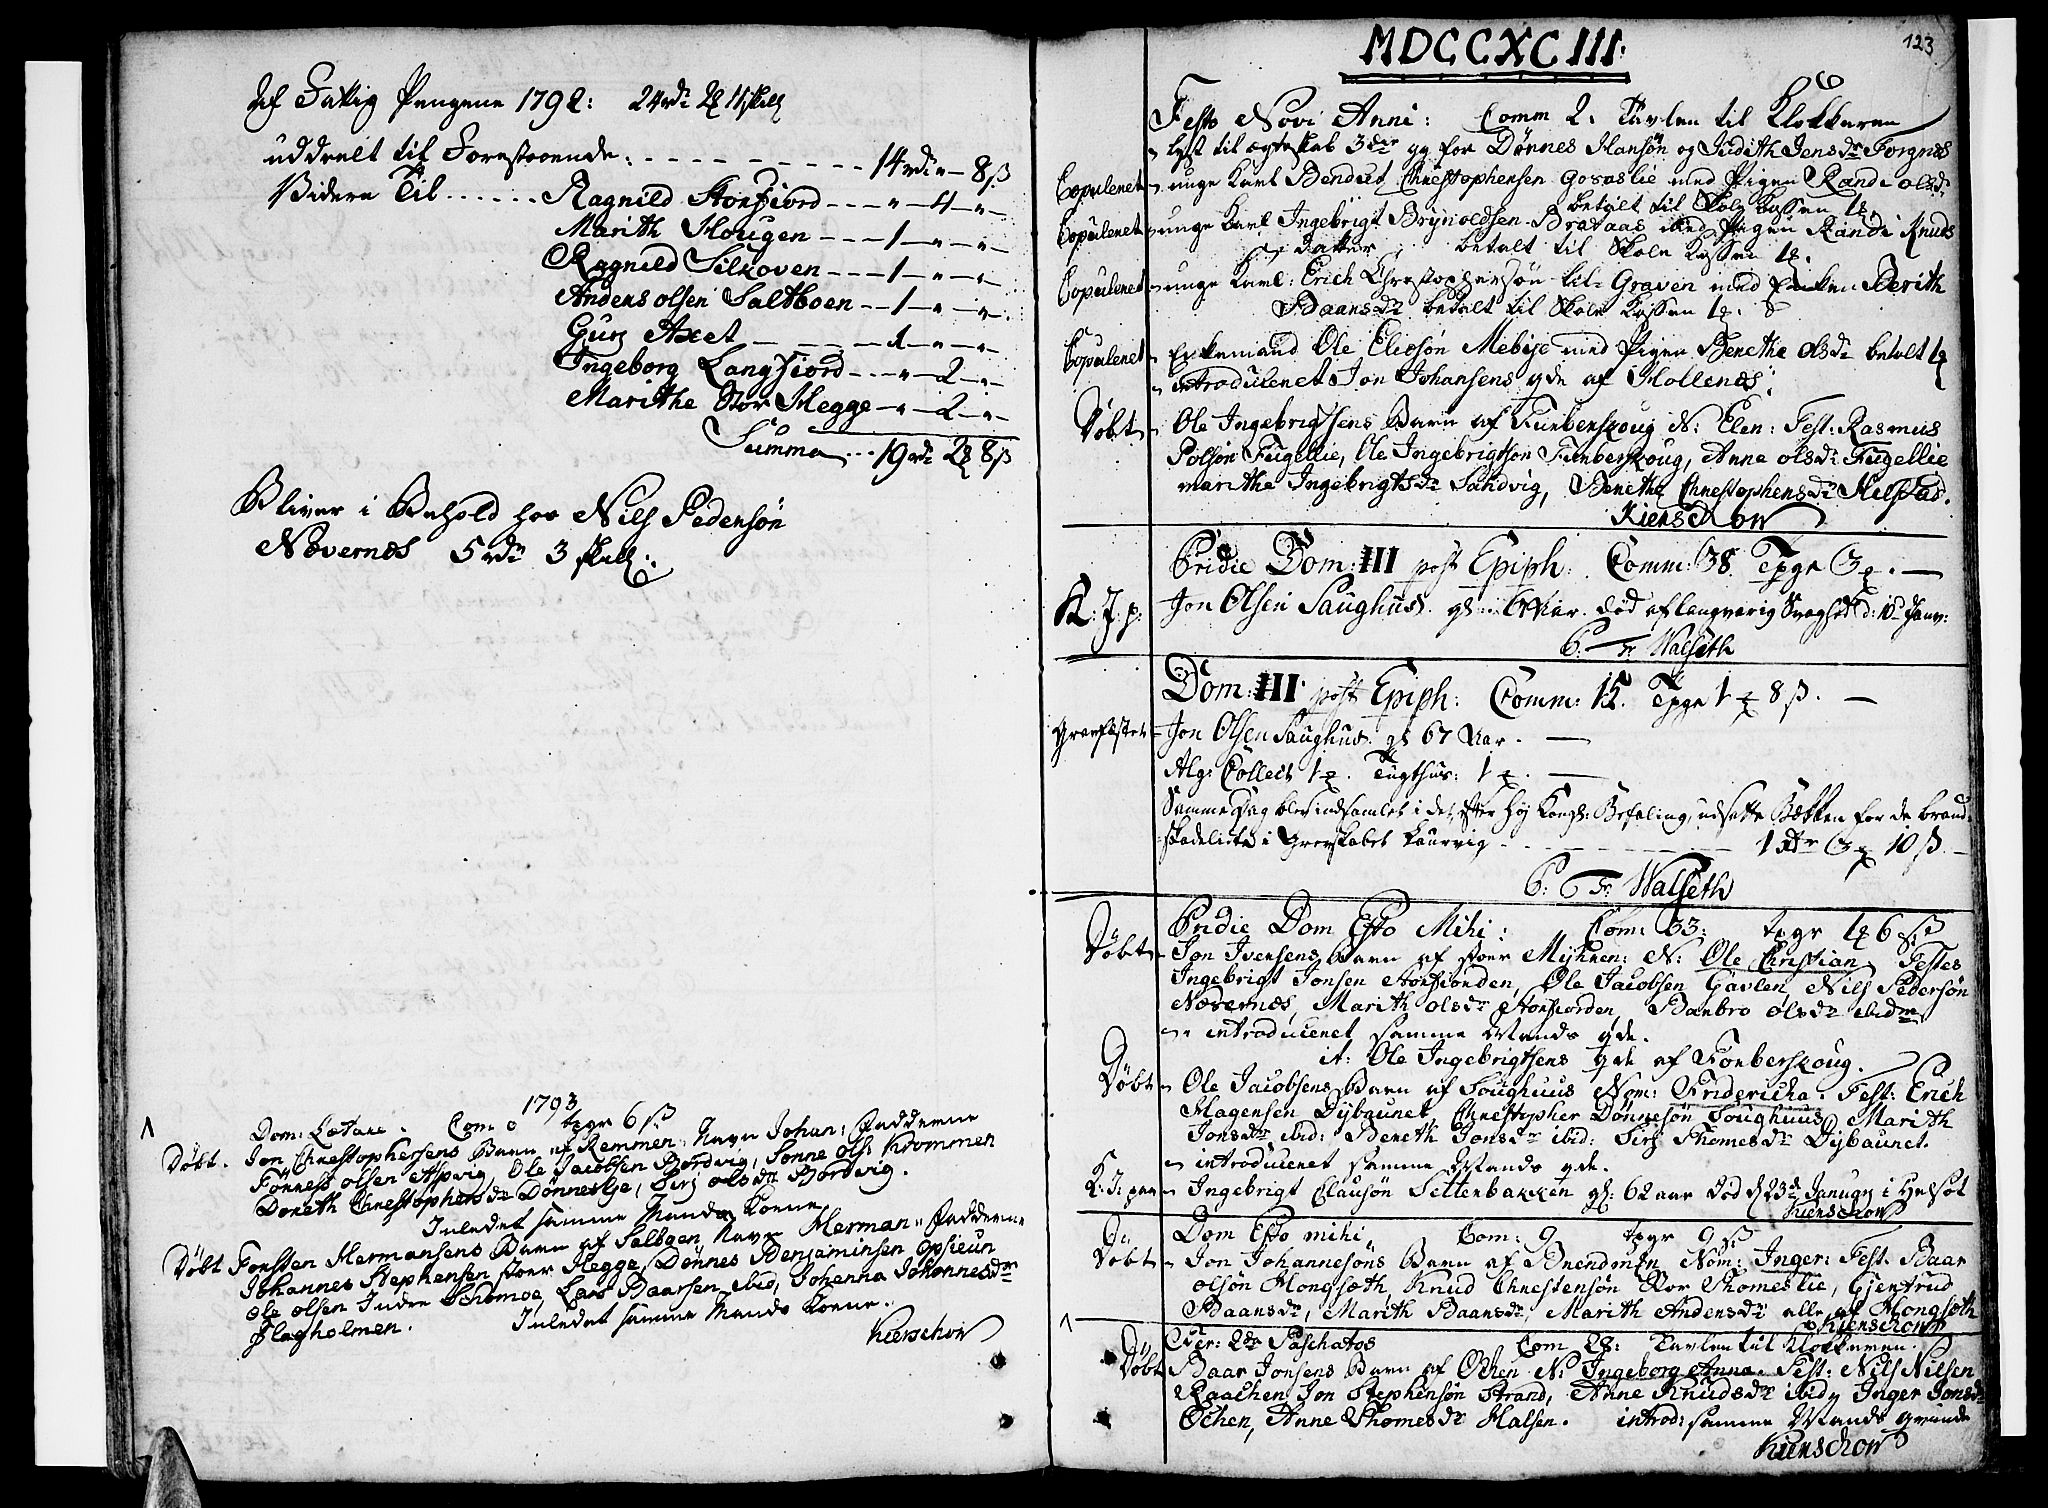 af Fattig Pengene 1792: 24 rdr 2 # 11 skill
uddeelt til Forestaaende: - - - - - - - - - 14 rdr " - 8 ß
Videre Til ...... Ragnild Storfiord - - - " - 4 - " -
Marith Hougen - - - 1 - " - " -
Ragnild Silkoven - - - 1 - " - " -
Anders olsen Saltboen - 1 - " - " -
Guri Axet - - - - 1 - " - " -
Ingeborg Langfiord - - - " - 2 - " -
Marithe Stor Hegge - " - 2 - " -
Summa ... 19 rdr 2 # 8 ß
Bliver i Behold hos Nils Pedersön
Nævernæs 5 rdr 3 skill:
1793
Dom: Lætare. Com: 0 tpgr 6 ß
Döbt. Jon Christophersens Barn af Remmen: Navn Johan: Fadderne
Tönnes olsen Aspvig, Ole Jacobsen Bordvig, Sonne ols: Krommen
Doreth Christophersdr Dönneslje, Siri olsdr Bordvig.
Inledet samme Mands Kone.
Döbt Torsten Hermansens Barn af Salbgen, Navn Herman: Fadderne
Johannes Stephensen stoer Hegge, Dönnes Benjaminsen opsieun
ole olsen Indre Thomoe, Lars Baarsen ibid, Johanna Johannesdr
Flagholmen. Inledet samme Mands Kone.
Kierschow
123
MDCCXCIII:
Festo Novi Anni: Comm 2: Tavlen til Klokkeren
" lyst til ægteskab 3die gg for Dönnes Hansön og Judith Jensdr Torgnæs
Copuleret - unge Karl Bendict Christophersen Gosaslie med Pigen Randi olsdr
betalt til Skole Cassen 1 #.
Copuleret - unge Karl Ingebrigt Brynoldsen Brataas med Pigen Randi Knuds
datter betalt til Skole Kassen 1 #.
Copuleret - unge Karl: Erich Christophersön lil-Graven med Enken Berith
Baarsdr betalt til Skole Kassen 1 #.
Copuleret - Enkemand Ole Eliesön Mebye med Pigen Berethe olsdr betalt 1 #
" introduceret Jon Johansens qde af Hollenæs:
Döbt - Ole Ingebrigtsens Barn af Furberskoug N: Elen: Test: Rasmus
Polsön Fugellie, Ole Ingebrigtsön Furberskoug, Anna olsdr Fugellie
marithe Ingebrigtsdr Sandvig, Berethe Christophersdr Helstad.
Kierschow
Pridie Dom: III post Epiph: Comm: 38. Tpgr 3 #. -
K: J: p: Jon Olsen Saughus. gl: 67 Aar. död af langvarig Svaghed d: 10d Janv:
C: Fr: Walseth
Dom: III post Epiph: Comm: 15. Tpgr 1 # 8 ß. -
Gravfæstet - Jon Olsen Saughus gl 67 Aar. -
Alg: Collect 1 #. Tugthus: 1 #. -
Samme Dag blev indsamlet i det, efter Höj Kongl: Befaling, udsatte Bækken for de brand-
skadelidte i Grevskabet Laurvig - - - - - - 1 rdr 3 # 10 ß -
C: Fr: Walseth
Pridie Dom Esto Mihi: Com: 33: tpgr 1 # 6 ß
Döbt - Jon Iversens Barn af stoer Myhren: N: Ole Christian. Testes
Ingebrigt Jonsen Storfiorden, Ole Jacobsen Gavlen, Nils Pedersön
Nævernæs, Marith olsdr Storfiorden, Barbro olsdr ibidm
" introduceret samme Mands qde.
it: Ole Ingebrigtsens qde af Forberskoug.
Döbt - Ole Jacobsens Barn af Soughuus Nom: Fridericha. Test: Erich
Hagensen Dybaunet, Christopher Dönnesön Soughuus, Marith
Jonsdr ibid: Bereth Jonsdr ibid: Siri Thomesdr Dybaunet.
" introduceret samme Mands qde.
K: J: paa - Ingebrigt Clausön Settenbakken gl: 62 aar död d 23d Janu i Helsöt
Kierschow
Dom Esto mihi, Com: 9 tpgr 9 ß
Döbt - Jon Johannesöns Barn af Brendmyr Nom: Inger: Test. Baar
olsön Hongsæth, Knud Christensön Stor Thomeslie, Gjertrud
Baarsdr, Marith Baarsdr, Marith Andersdr alle af Hongsæth
Kierschow
Ever: 2da Paschatos Com 28: Tavlen til Klokkeren.
Döbt Baar Jonsens Barn af Öchen N: Ingeborg Anna. Test: Nils Nilsen
Raachen, Jon Stephensön Strand, Anne Knudsdr ibid, Inger Jonsdr
Öchen, Anne Thomesdr Halsen. introd: samme Mands qvinde
Kierschow